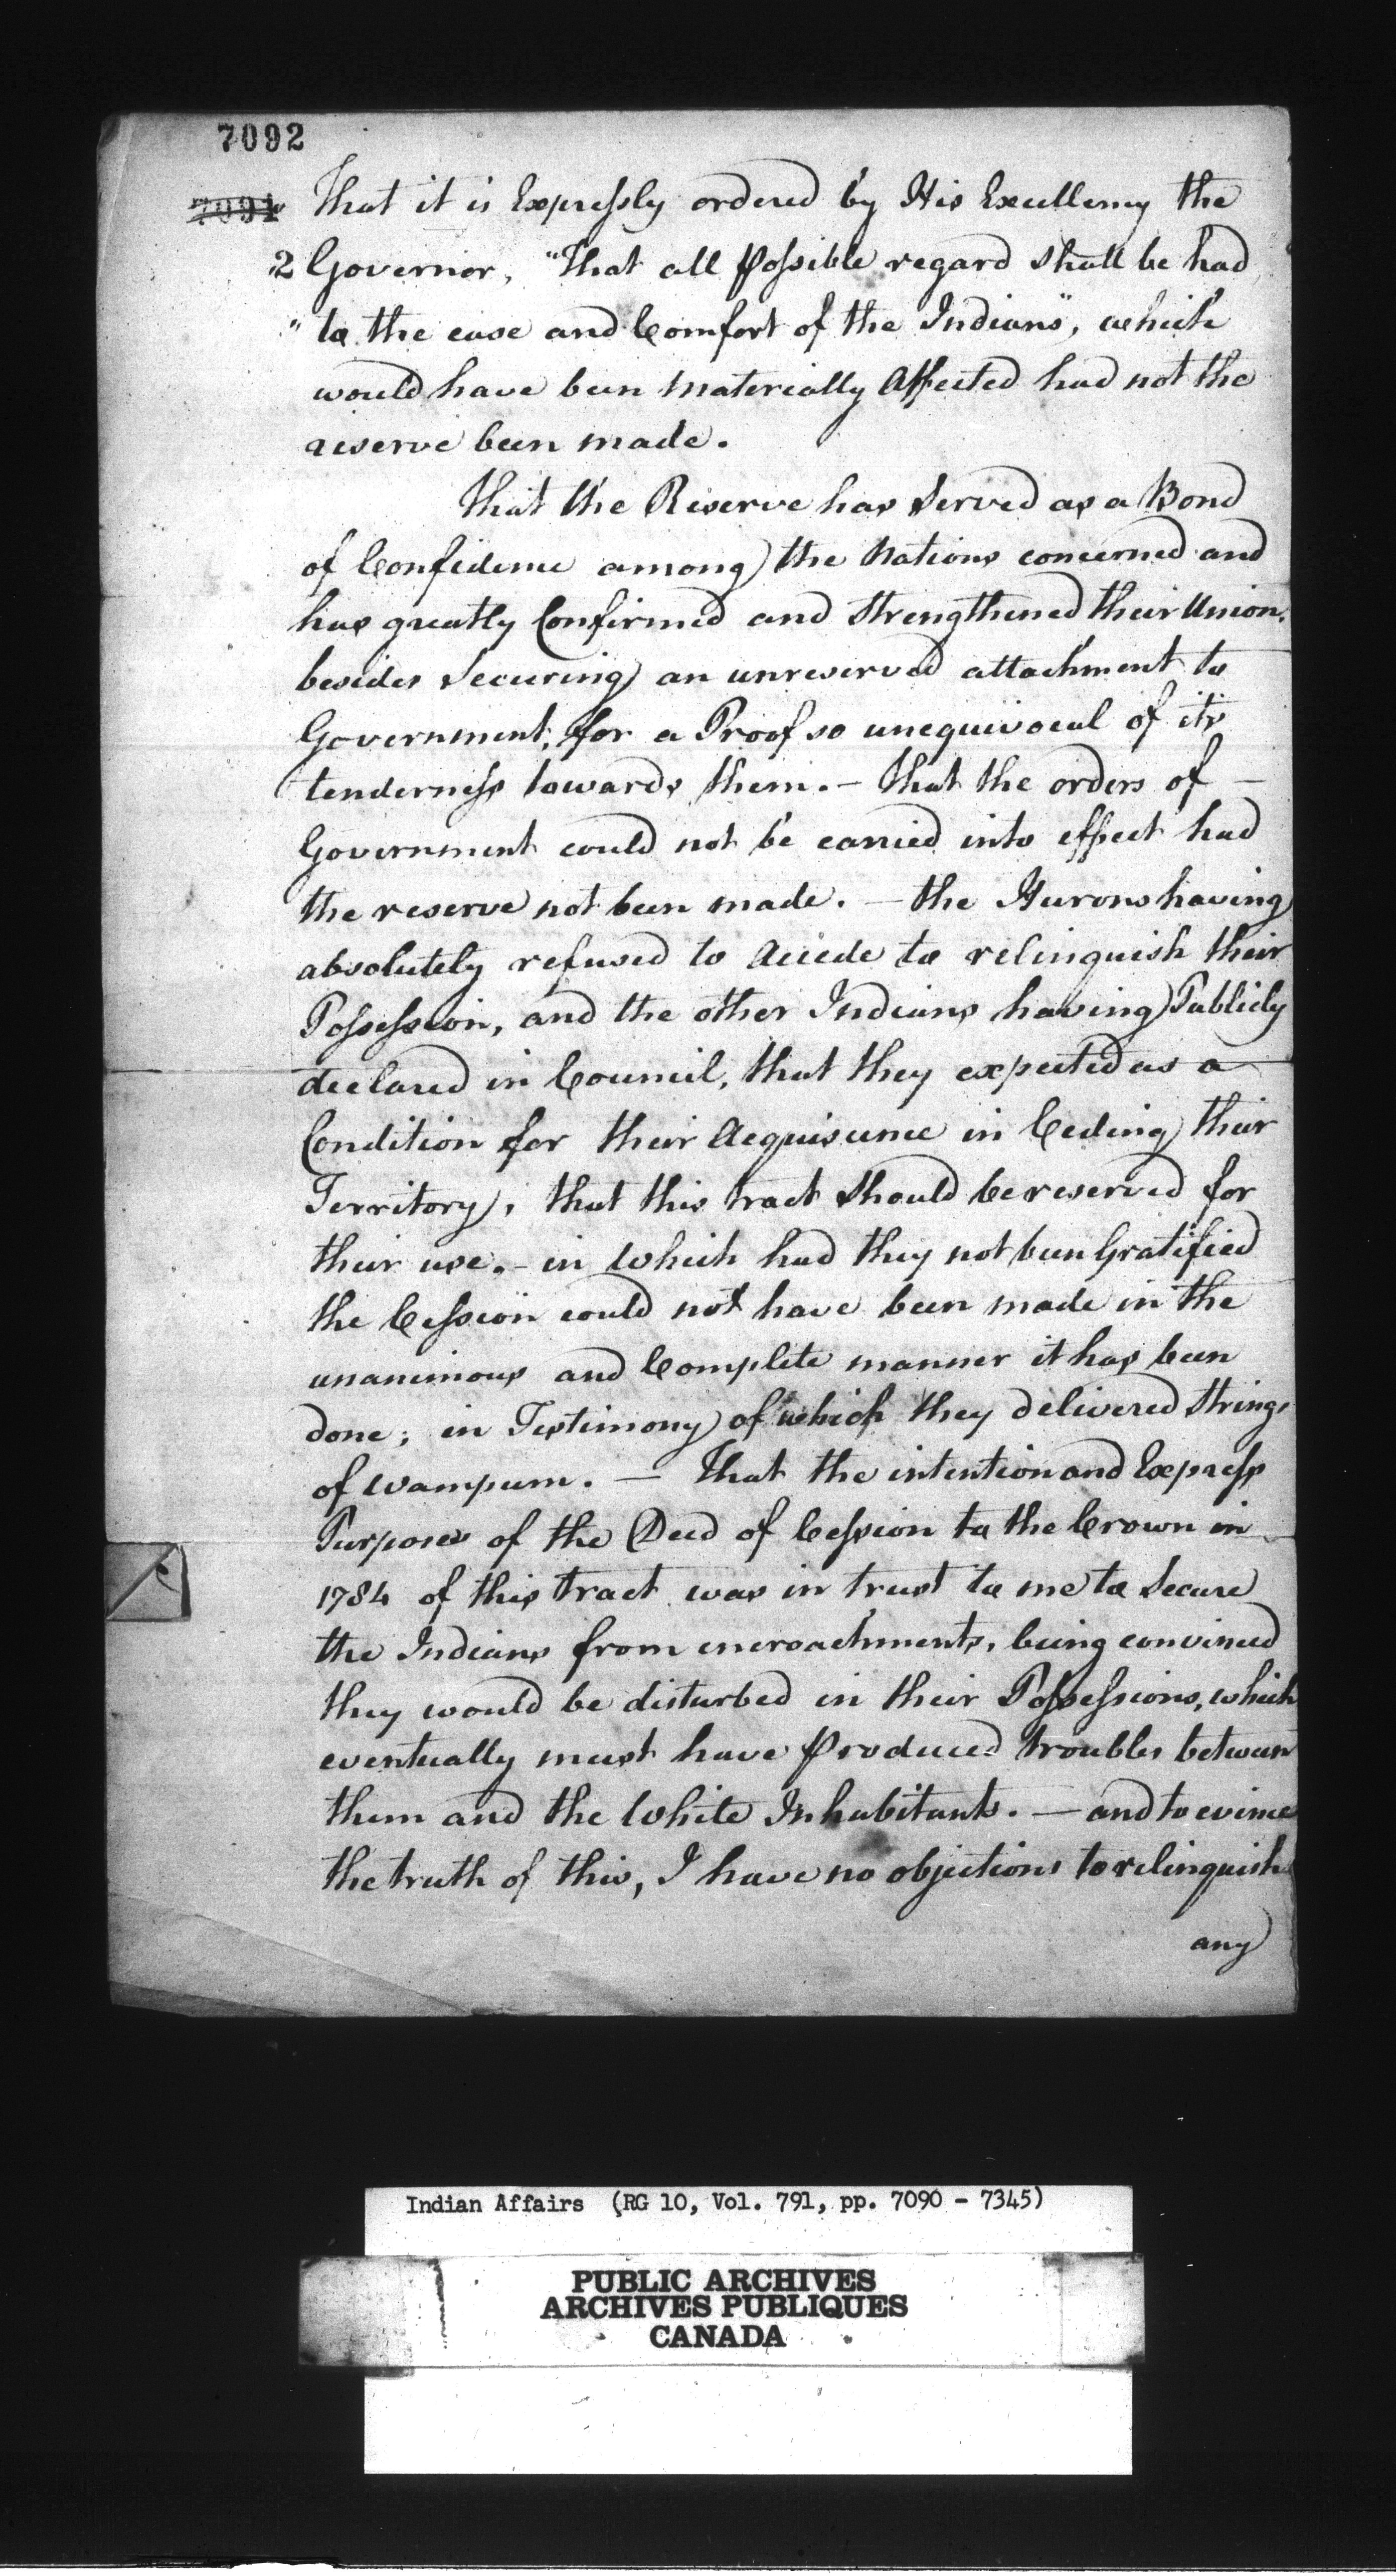 7092
7091
That it is Expressly ordered by His Excellency the
2 Governor, "That all possible regard shall be had
" to the ease and Comfort of the Indians", which
would have been materially Affected had not the
reserve been made.
That the Reserve has served as a Bond
of Confidence among the Nations concerned and
has greatly Confirmed and strengthened their Union.
besides securing an unreserved attachment to
Government, for a Proof so unequivocal of its
tenderness towards them. — that the orders of —
Government could not be carried into effect had
the reserve not been made. — the Hurons having
absolutely refused to Accede to relinquish their
Possession, and the other Indians having Publicly
declared in Council, that they expected as a
Condition for their Acquiscence in Ceding their
Territory, that this tract should be reserved for
their use. — in which had they not been Gratified
the Cession could not have been made in the
unanimous and Complete manner it has been
done; in Testimony of which they delivered strings
of wampum. — That the intention and Express
Purposes of the Deed of Cession to the Crown in
1784 of this tract was in trust to me to secure
the Indians from encroachments, being convinced
they would be disturbed in their Possessions, which
eventually must have produced troubles between
them and the White Inhabitants. — and to evince
the truth of this, I have no objections to relinquish
any
Indian Affairs (RG 10, Vol. 791, pp. 7090 - 7345)
PUBLIC ARCHIVES
ARCHIVES PUBLIQUES
CANADA